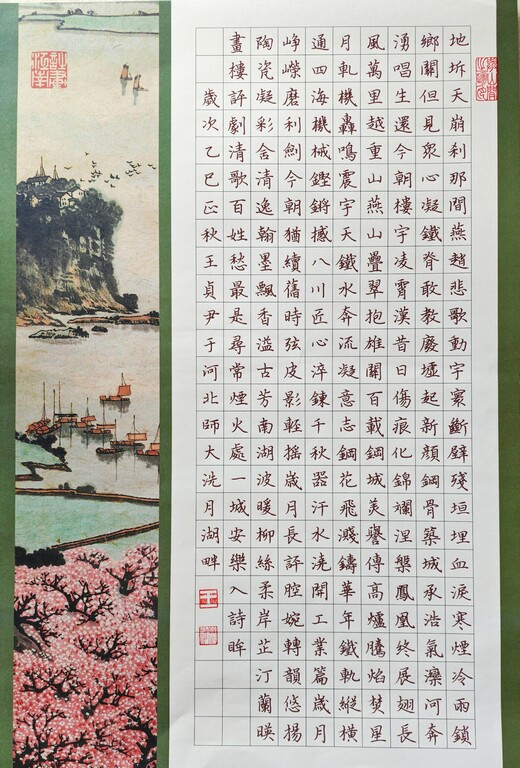 地坼天崩刹那間燕趙悲歌動宇寰斷壁殘垣埋血淚寒煙冷雨鎖
鄉關但見眾心凝鐵脊敢教廢墟起新顏鋼骨築城承浩氣灤河奔
湧唱生還今朝樓宇凌霄漢昔日傷痕化錦斕涅槃鳳凰終展翅長
風萬里越重山燕山疊翠抱雄關百載鋼城美譽傳高爐騰焰焚星
月軋機轟鳴震宇天鐵水奔流凝意志鋼花飛濺鑄華年鐵軌縱橫
通四海機械鏗鏘撼八川匠心淬鍊千秋器汗水澆開工業篇歲月
崢嶸磨利劍今朝猶續舊時弦皮影輕搖歲月長評腔婉轉韻悠揚
陶瓷凝彩含清逸翰墨飄香溢古芳南湖波暖柳絲柔岸芷汀蘭暎
畫樓評劇清歌百姓愁最是尋常煙火處一城安樂入詩眸
歲次乙巳正秋王貞尹于河北師大洗月湖畔
王